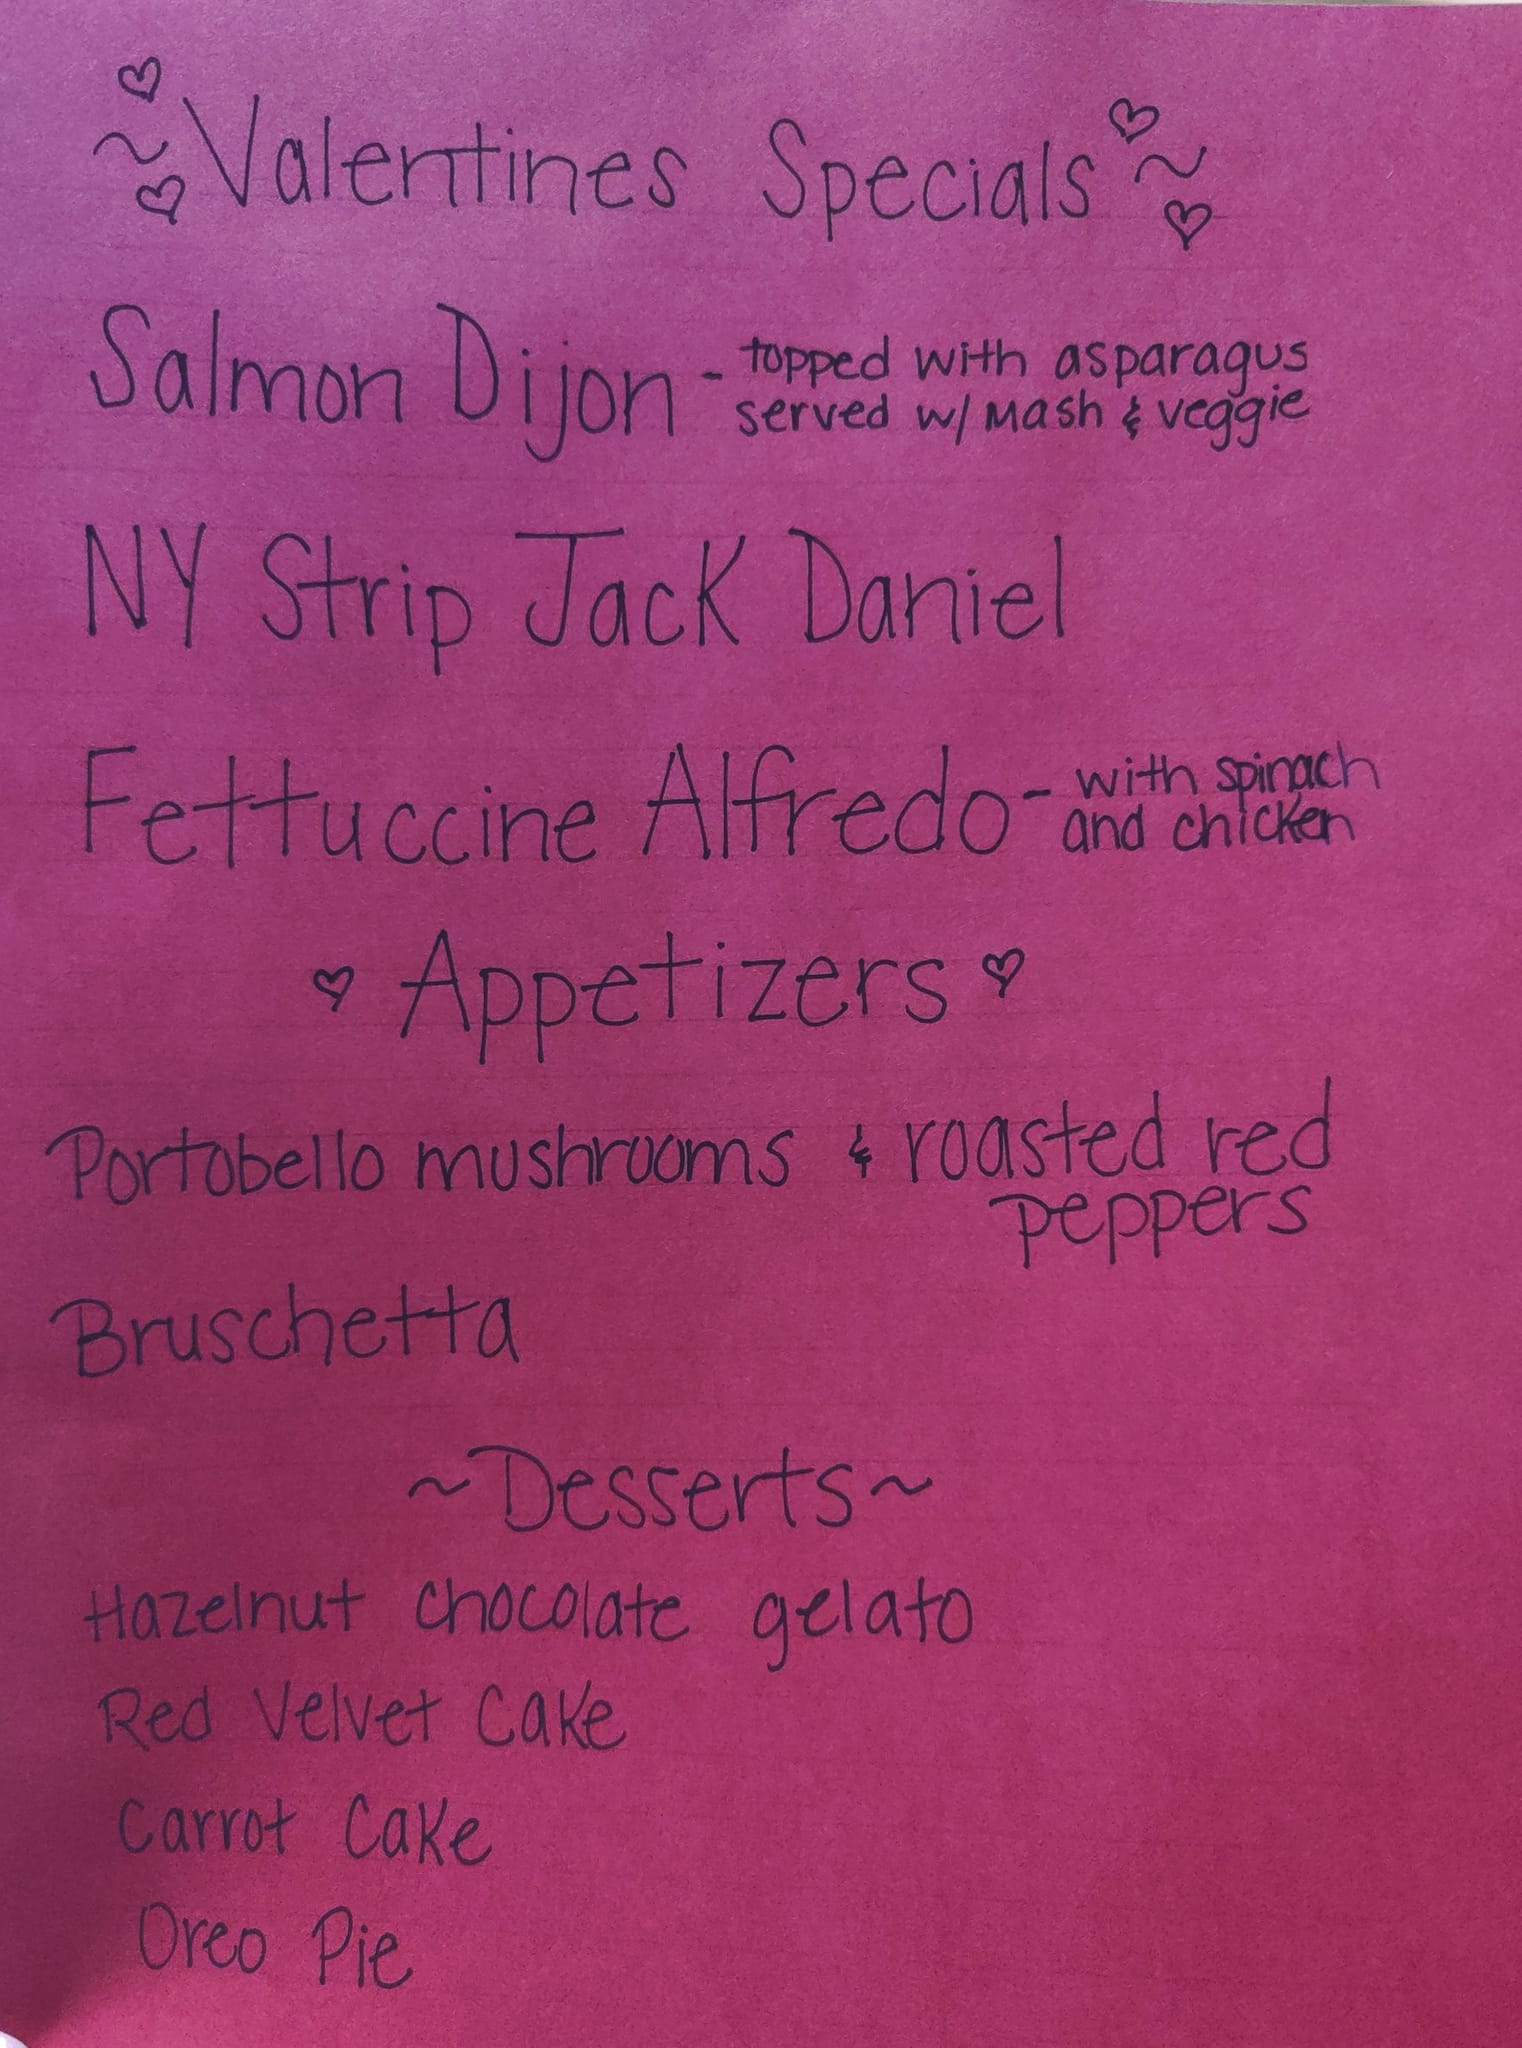 ~Valentines Specials~
Salmon Dijon - topped with asparagus
served w/ Mash & veggie
NY Strip Jack Daniel
Fettuccine Alfredo - with spinach
and chicken
Appetizers
Portobello mushrooms & roasted red
peppers
Bruschetta
~Desserts~
Hazelnut chocolate gelato
Red Velvet Cake
Carrot Cake
Oreo Pie